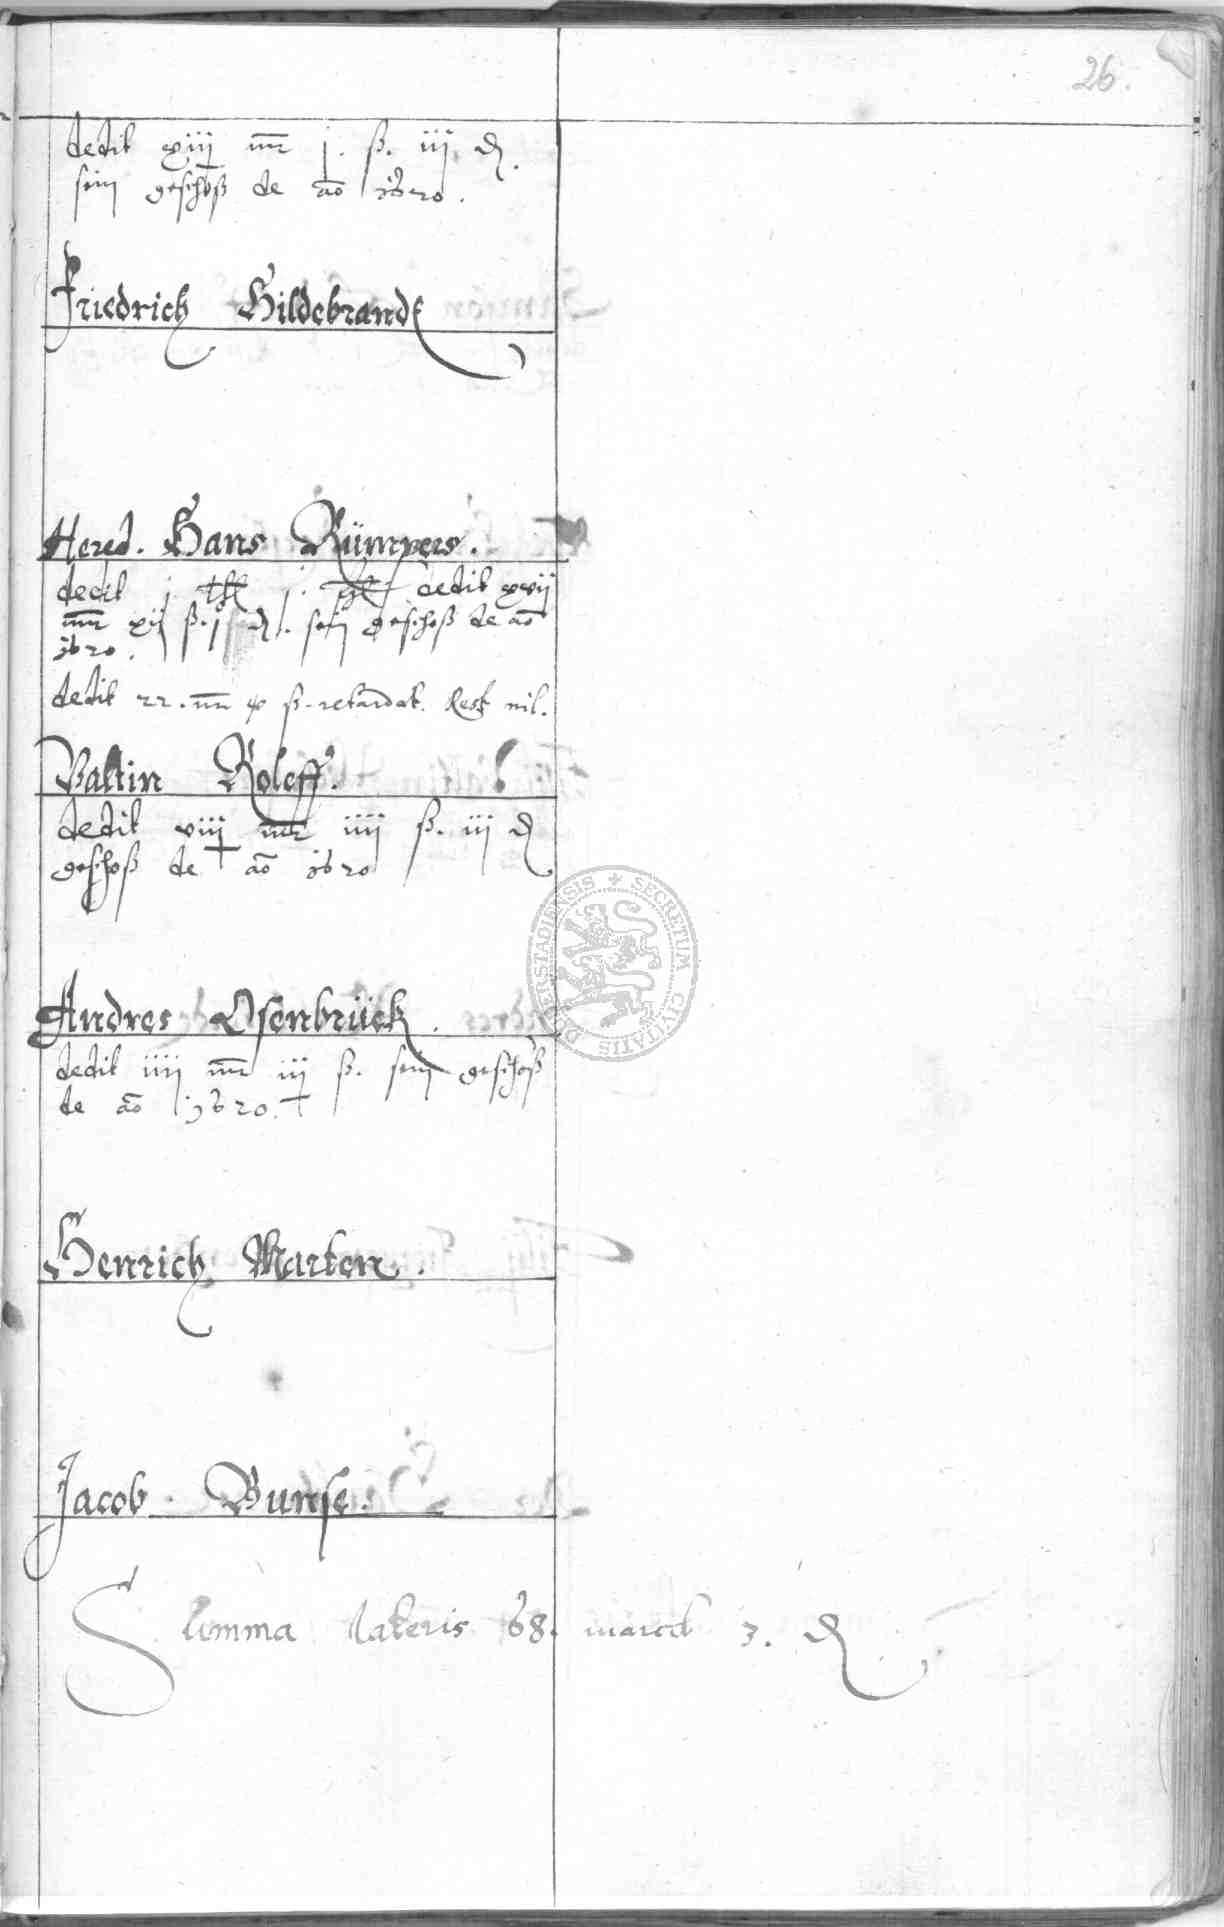 26.
dedit xiij mr j. ß. iij ₰.
sein geschoß de ao 1620.
Friedrich Hildebrandt
Hered. Hans Rümpers.
dedit j dedit xvij
mr xij ß. j ₰. sein geschoß de ao
1620.
dedit 22. mr x ß. retardat. Rest nil.
Valtin Roleff.
dedit viij mr iiij ß. iij ₰
geschoß de ao 1620
Andres Osenbrück.
dedit iiij mr iij ß. sein geschoß
de ao 1620.
Henrich Marten.
Jacob Bunse.
Summa lateris 68. marck 3. ₰
SECRETUM CIVITATIS DUDERSTADIENSIS